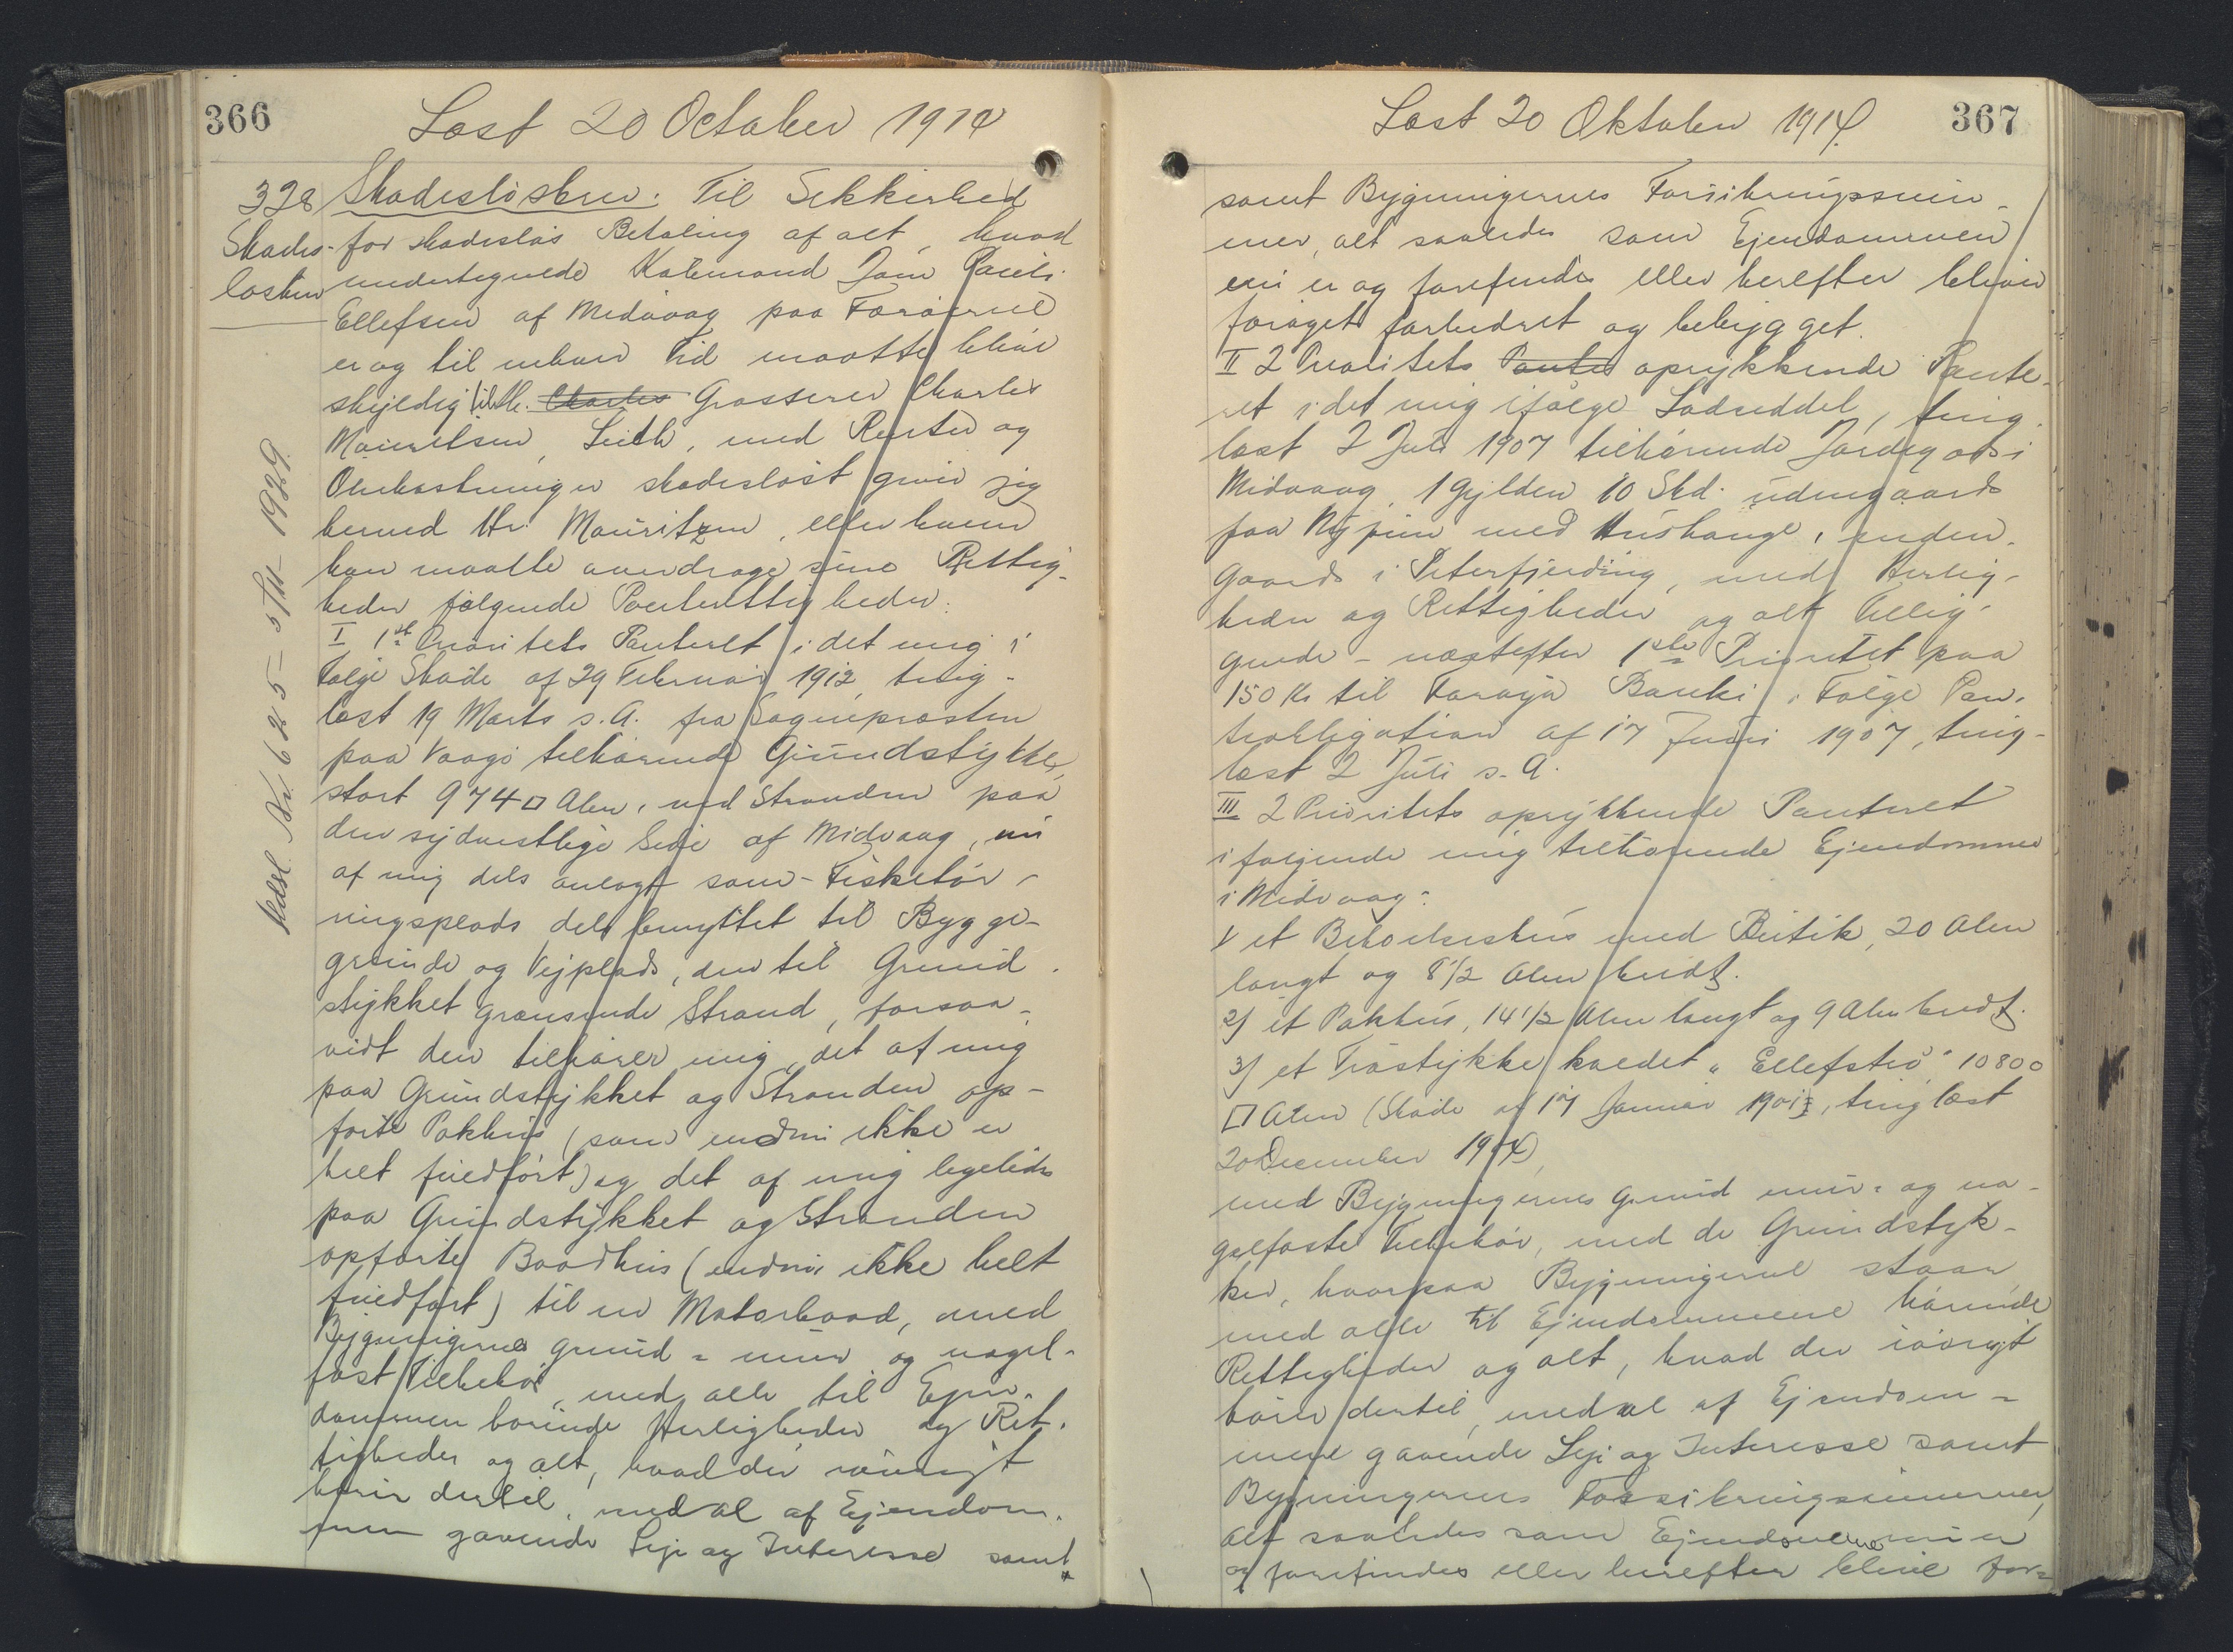 366
Læst 20 October 1914
328 Skadesløsbrev: Til Sikkerhed
Skades- for skadesløs Betaling af alt, hvad
løsbrev undertegnede Købmand Jóin Pauli
Ellefsen af Midvaag paa Færøerne
er og til enhver Tid maatte blive
skyldig til Hr. Charles Grosserer Charles
Mauritzen, Leith, med Renter og
Omkostninger skadesløst giver jeg
herved Hr. Mauritzen, eller hvem
han maatte overdrage sine Rettig-
heder følgende Panterettigheder:
I 1st Prioritets Panteret i det mig i
Følge Skøde af 29 Februar 1912, ting-
læst 19 Marts s. A. fra Sognepræsten
paa Vaagø tilhørende Grundstykke,
stort 974 □ Alen, ved Stranden paa
den sydvestlige Side af Midvaag, nu
af mig dels anlagt som Fisketør-
ringsplads dels benyttet til Bygge-
grunde og Vejplads, den til Grund-
stykket grænsende Strand, forsaa-
vidt den tilhører mig, det af mig
paa Grundstykket og Stranden op-
førte Pakhus (som endnu ikke er
helt fuldført) og det af mig ligeledes
paa Grundstykket og Stranden
opførte Baadhus (endnu ikke helt
fuldført) til en Motorbaad, med
Bygningernes grund- mur og nagel-
fast Tilbehør, med alle til Ejen-
dommen hørende Herligheder og Ret-
tigheder og alt, hvad der iøvrigt
hører dertil, med al af Ejendom-
men gaaende Leje og Interesse samt
Udsl. Nr. 625 - 5/11 - 1929
Læst 20 Oktober 1914.
367
samt Bygningernes Forsikringssum-
mer, alt saaledes som Ejendommen
nu er og forefindes eller herefter bliver
forøget forbedret og bebygget.
II 2 Prioritets Pante oprykkende Pante-
ret i det mig ifølge Lodseddel, ting-
læst 2 Juli 1907 tilhørende Jordegods i
Midvaag, 1 Gylden 10 Skd. udengaards
paa Nypun med Hushauge, inden-
gaards i Peterfjerding, med Herlig-
heder og Rettigheder og alt Tillig-
gende - næstefter 1ste Prioritet paa
150 Kr til Føroya Banki i Følge Pan-
teobligation af 17 Juni 1907, ting-
læst 2 Juli s. A.
III 2 Prioritets oprykkende Panteret
i følgende mig tilhørende Ejendomme
i Midvaag:
1) et Beboelseshus med Butik, 20 Alen
langt og 8 1/2 Alen bredt.
2) et Pakhus, 14 1/2 Alen langt og 9 Alen bredt.
3) et Trøstykke kaldet "Ellefstrø" 10800
□ Alen (Skøde af 17 Januar 1913, tinglæst
20 December 1914),
med Bygningernes grund mur- og na-
gelfaste Tilbehør, med de Grundstyk-
ker, hvorpaa Bygningerne staar,
med alle til Ejendommene hørende
Rettigheder og alt, hvad der iøvrigt
hører dertil, med al af Ejendom-
mene gaaende Leje og Interesse samt
Bygningernes Forsikringssummer,
alt saaledes som Ejendommene nu er
og forefindes eller herefter blive for-